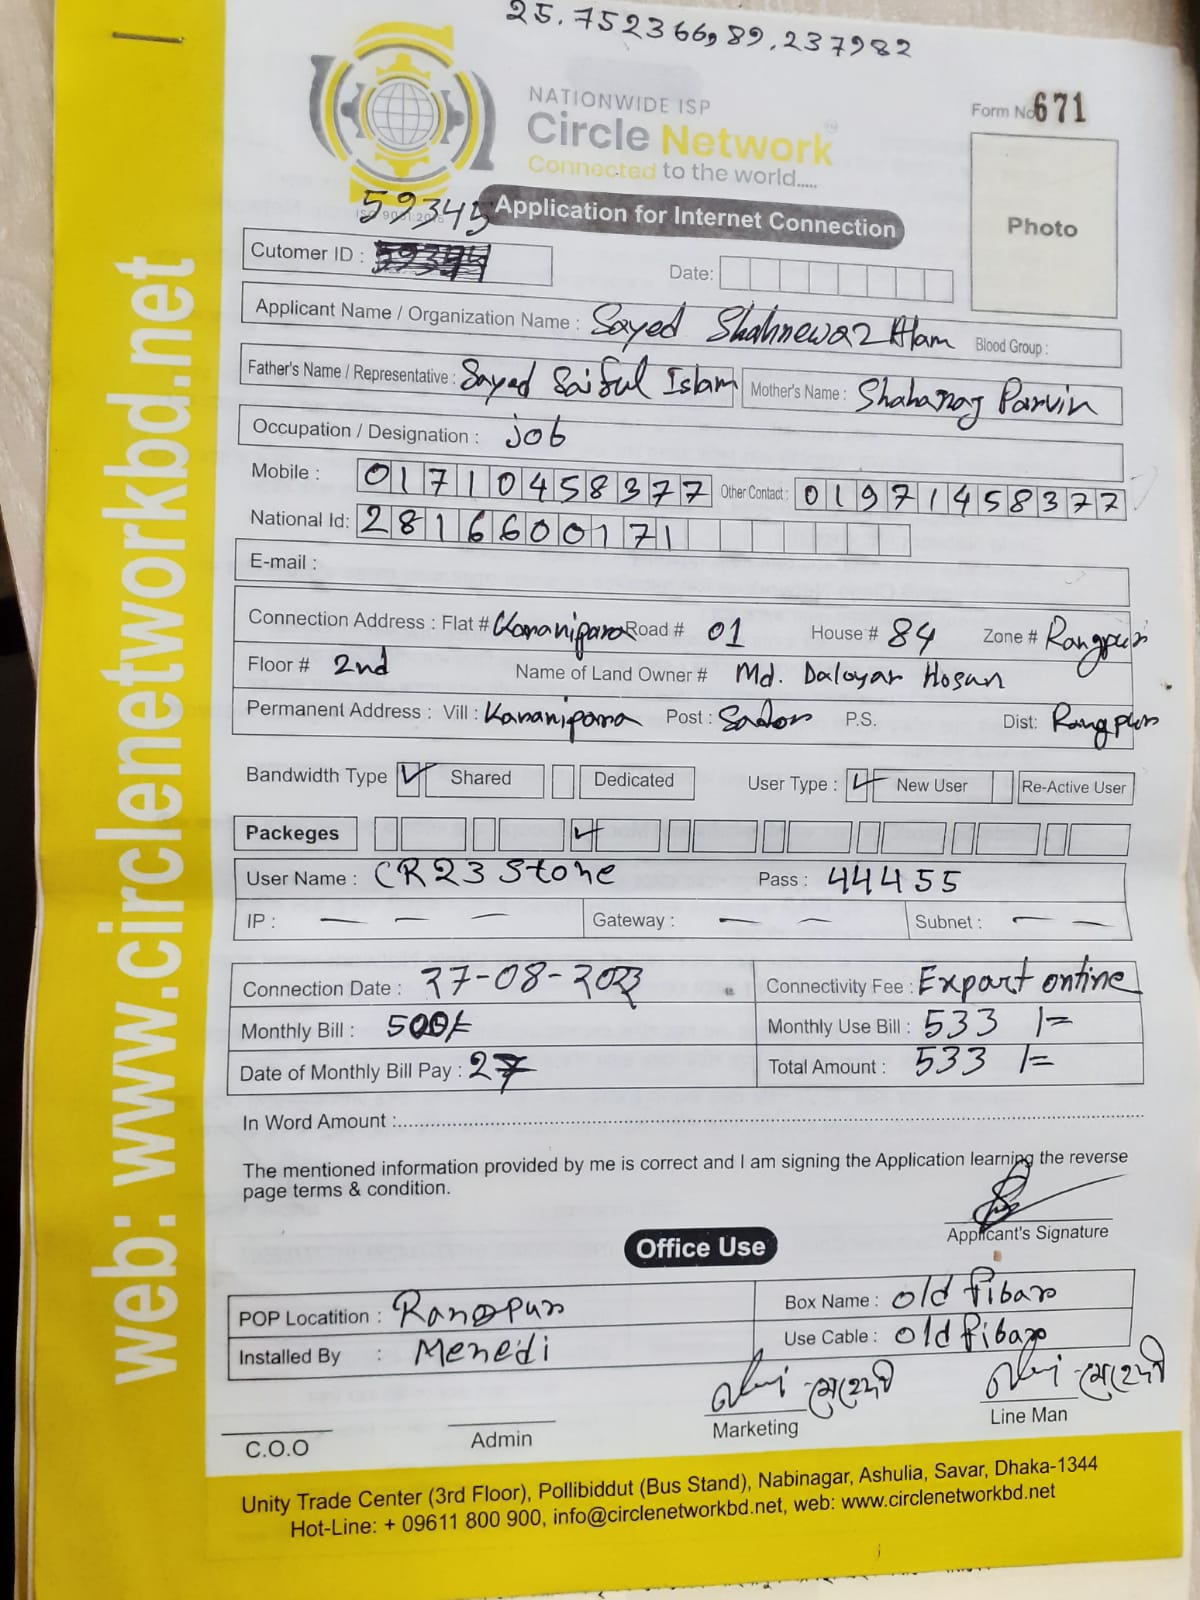 25.752366, 89.237982
NATIONWIDE ISP
Circle Network
Connected to the world.....
Form No 671
Photo
59345
Application for Internet Connection
Cutomer ID :
Date:
Applicant Name / Organization Name : Sayed Shahnewaz Alam Blood Group :
Father's Name / Representative : Sayed Saiful Islam Mother's Name : Shahanaj Parvin
Occupation / Designation : job
Mobile : 01710458377 Other Contact : 01971458377
National Id: 2816600171
E-mail :
Connection Address : Flat # Kananipara Road # 01 House # 84 Zone # Rangpur
Floor # 2nd Name of Land Owner # Md. Daloyar Hosan
Permanent Address : Vill : Kananipara Post : Sador P.S. Dist: Rangpur
Bandwidth Type ✓ Shared Dedicated User Type : ✓ New User Re-Active User
Packeges ✓
User Name : CR23 Stone Pass : 44455
IP : — — — Gateway : — — Subnet : — —
Connection Date : 27-08-2023 Connectivity Fee : Expart online
Monthly Bill : 500/= Monthly Use Bill : 533 /=
Date of Monthly Bill Pay : 27 Total Amount : 533 /=
In Word Amount :
The mentioned information provided by me is correct and I am signing the Application learning the reverse
page terms & condition.
Applicant's Signature
Office Use
POP Locatition : Rangpur Box Name : old fibar
Installed By : Menedi Use Cable : old fibar
মেহেদী মেহেদী
C.O.O Admin Marketing Line Man
Unity Trade Center (3rd Floor), Pollibiddut (Bus Stand), Nabinagar, Ashulia, Savar, Dhaka-1344
Hot-Line: + 09611 800 900, info@circlenetworkbd.net, web: www.circlenetworkbd.net
web: www.circlenetworkbd.net